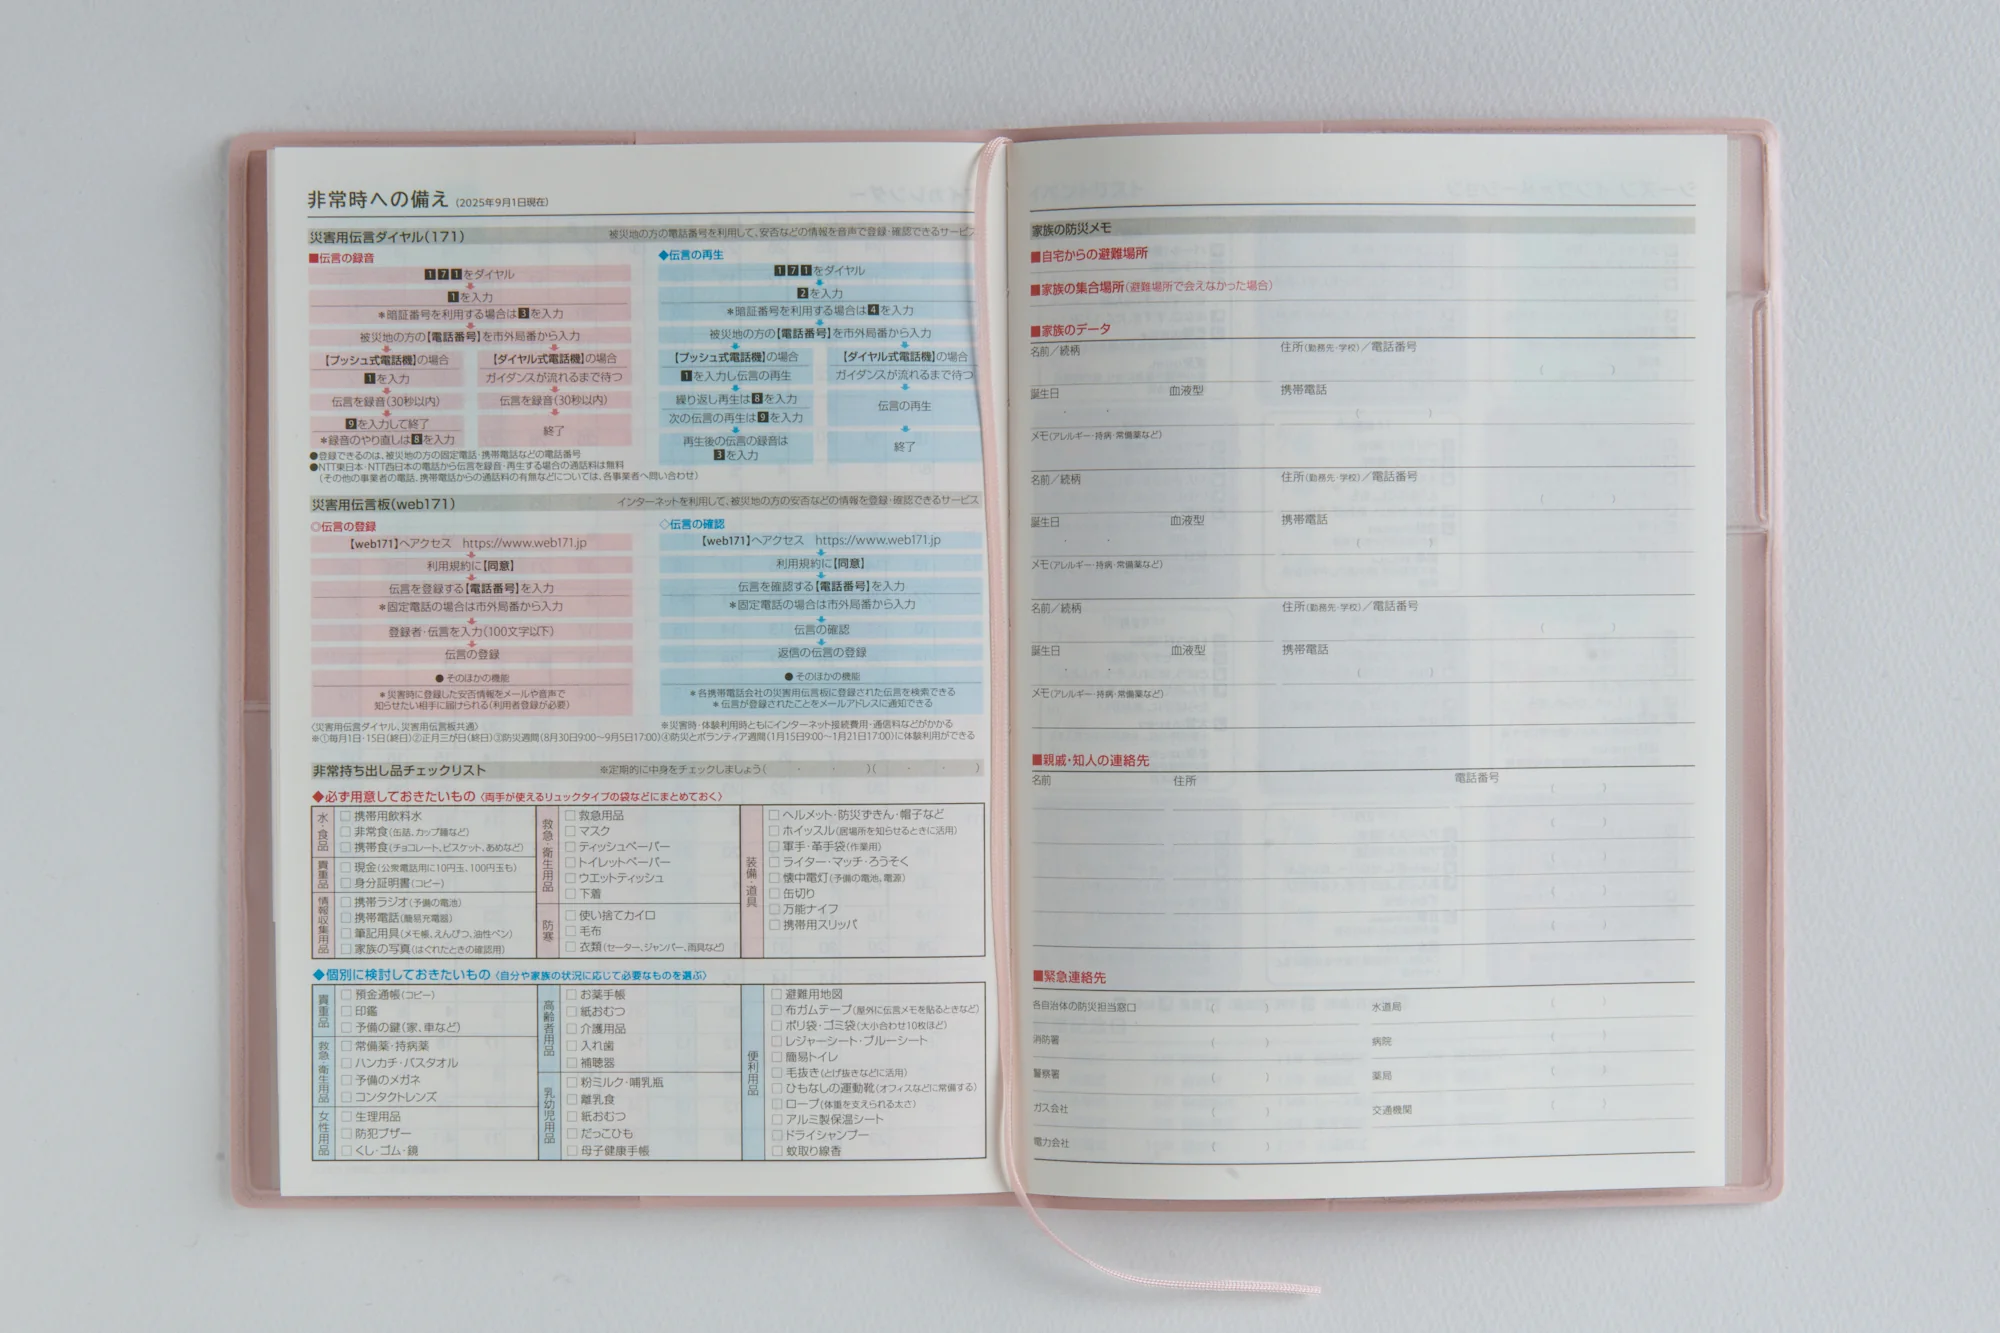 非常時への備え (2025年9月1日現在)
災害用伝言ダイヤル(171) 被災地の方の電話番号を利用して、安否などの情報を音声で登録・確認できるサービス
■伝言の録音
171をダイヤル
1を入力
*暗証番号を利用する場合は3を入力
被災地の方の【電話番号】を市外局番から入力
【プッシュ式電話機】の場合
1を入力
伝言を録音(30秒以内)
9を入力して終了
*録音のやり直しは8を入力
【ダイヤル式電話機】の場合
ガイダンスが流れるまで待つ
伝言を録音(30秒以内)
終了
◆伝言の再生
171をダイヤル
2を入力
*暗証番号を利用する場合は4を入力
被災地の方の【電話番号】を市外局番から入力
【プッシュ式電話機】の場合
1を入力し伝言の再生
繰り返し再生は8を入力
次の伝言の再生は9を入力
再生後の伝言の録音は
3を入力
【ダイヤル式電話機】の場合
ガイダンスが流れるまで待つ
伝言の再生
終了
●登録できるのは、被災地の方の固定電話・携帯電話などの電話番号
●NTT東日本・NTT西日本の電話から伝言を録音・再生する場合の通話料は無料
(その他の事業者の電話、携帯電話からの通話料の有無などについては、各事業者へ問い合わせ)
災害用伝言板(web171) インターネットを利用して、被災地の方の安否などの情報を登録・確認できるサービス
◎伝言の登録
【web171】へアクセス https://www.web171.jp
利用規約に【同意】
伝言を登録する【電話番号】を入力
*固定電話の場合は市外局番から入力
登録者・伝言を入力(100文字以下)
伝言の登録
●そのほかの機能
*災害時に登録した安否情報をメールや音声で
知らせたい相手に届けられる(利用者登録が必要)
◇伝言の確認
【web171】へアクセス https://www.web171.jp
利用規約に【同意】
伝言を確認する【電話番号】を入力
*固定電話の場合は市外局番から入力
伝言の確認
返信の伝言の登録
●そのほかの機能
*各携帯電話会社の災害用伝言板に登録された伝言を検索できる
*伝言が登録されたことをメールアドレスに通知できる
〈災害用伝言ダイヤル、災害用伝言板共通〉 ※災害時・体験利用時ともにインターネット接続費用・通信料などがかかる
※①毎月1日・15日(終日)②正月三が日(終日)③防災週間(8月30日9:00～9月5日17:00)④防災とボランティア週間(1月15日9:00～1月21日17:00)に体験利用ができる
非常持ち出し品チェックリスト ※定期的に中身をチェックしましょう( ・ ・ )( ・ ・ )
◆必ず用意しておきたいもの〈両手が使えるリュックタイプの袋などにまとめておく〉
水・食品
□携帯用飲料水
□非常食(缶詰、カップ麺など)
□携帯食(チョコレート、ビスケット、あめなど)
貴重品
□現金(公衆電話用に10円玉、100円玉も)
□身分証明書(コピー)
情報収集用品
□携帯ラジオ(予備の電池)
□携帯電話(簡易充電器)
□筆記用具(メモ帳、えんぴつ、油性ペン)
□家族の写真(はぐれたときの確認用)
救急・衛生用品
□救急用品
□マスク
□ティッシュペーパー
□トイレットペーパー
□ウエットティッシュ
□下着
防寒
□使い捨てカイロ
□毛布
□衣類(セーター、ジャンパー、雨具など)
装備・道具
□ヘルメット・防災ずきん・帽子など
□ホイッスル(居場所を知らせるときに活用)
□軍手・革手袋(作業用)
□ライター・マッチ・ろうそく
□懐中電灯(予備の電池、電源)
□缶切り
□万能ナイフ
□携帯用スリッパ
◆個別に検討しておきたいもの〈自分や家族の状況に応じて必要なものを選ぶ〉
貴重品
□預金通帳(コピー)
□印鑑
□予備の鍵(家、車など)
救急・衛生用品
□常備薬・持病薬
□ハンカチ・バスタオル
□予備のメガネ
□コンタクトレンズ
女性用品
□生理用品
□防犯ブザー
□くし・ゴム・鏡
高齢者用品
□お薬手帳
□紙おむつ
□介護用品
□入れ歯
□補聴器
乳幼児用品
□粉ミルク・哺乳瓶
□離乳食
□紙おむつ
□だっこひも
□母子健康手帳
便利用品
□避難用地図
□布ガムテープ(屋外に伝言メモを貼るときなど)
□ポリ袋・ゴミ袋(大小合わせ10枚ほど)
□レジャーシート・ブルーシート
□簡易トイレ
□毛抜き(とげ抜きなどに活用)
□ひもなしの運動靴(オフィスなどに常備する)
□ロープ(体重を支えられる太さ)
□アルミ製保温シート
□ドライシャンプー
□蚊取り線香
家族の防災メモ
■自宅からの避難場所
■家族の集合場所(避難場所で会えなかった場合)
■家族のデータ
名前／続柄 住所(勤務先・学校)／電話番号
( )
誕生日 血液型 携帯電話
・ ・ ( )
メモ(アレルギー・持病・常備薬など)
名前／続柄 住所(勤務先・学校)／電話番号
( )
誕生日 血液型 携帯電話
・ ・ ( )
メモ(アレルギー・持病・常備薬など)
名前／続柄 住所(勤務先・学校)／電話番号
( )
誕生日 血液型 携帯電話
・ ・ ( )
メモ(アレルギー・持病・常備薬など)
■親戚・知人の連絡先
名前 住所 電話番号
( )
( )
( )
( )
( )
( )
■緊急連絡先
各自治体の防災担当窓口 ( ) 水道局 ( )
消防署 ( ) 病院 ( )
警察署 ( ) 薬局 ( )
ガス会社 ( ) 交通機関 ( )
電力会社 ( )